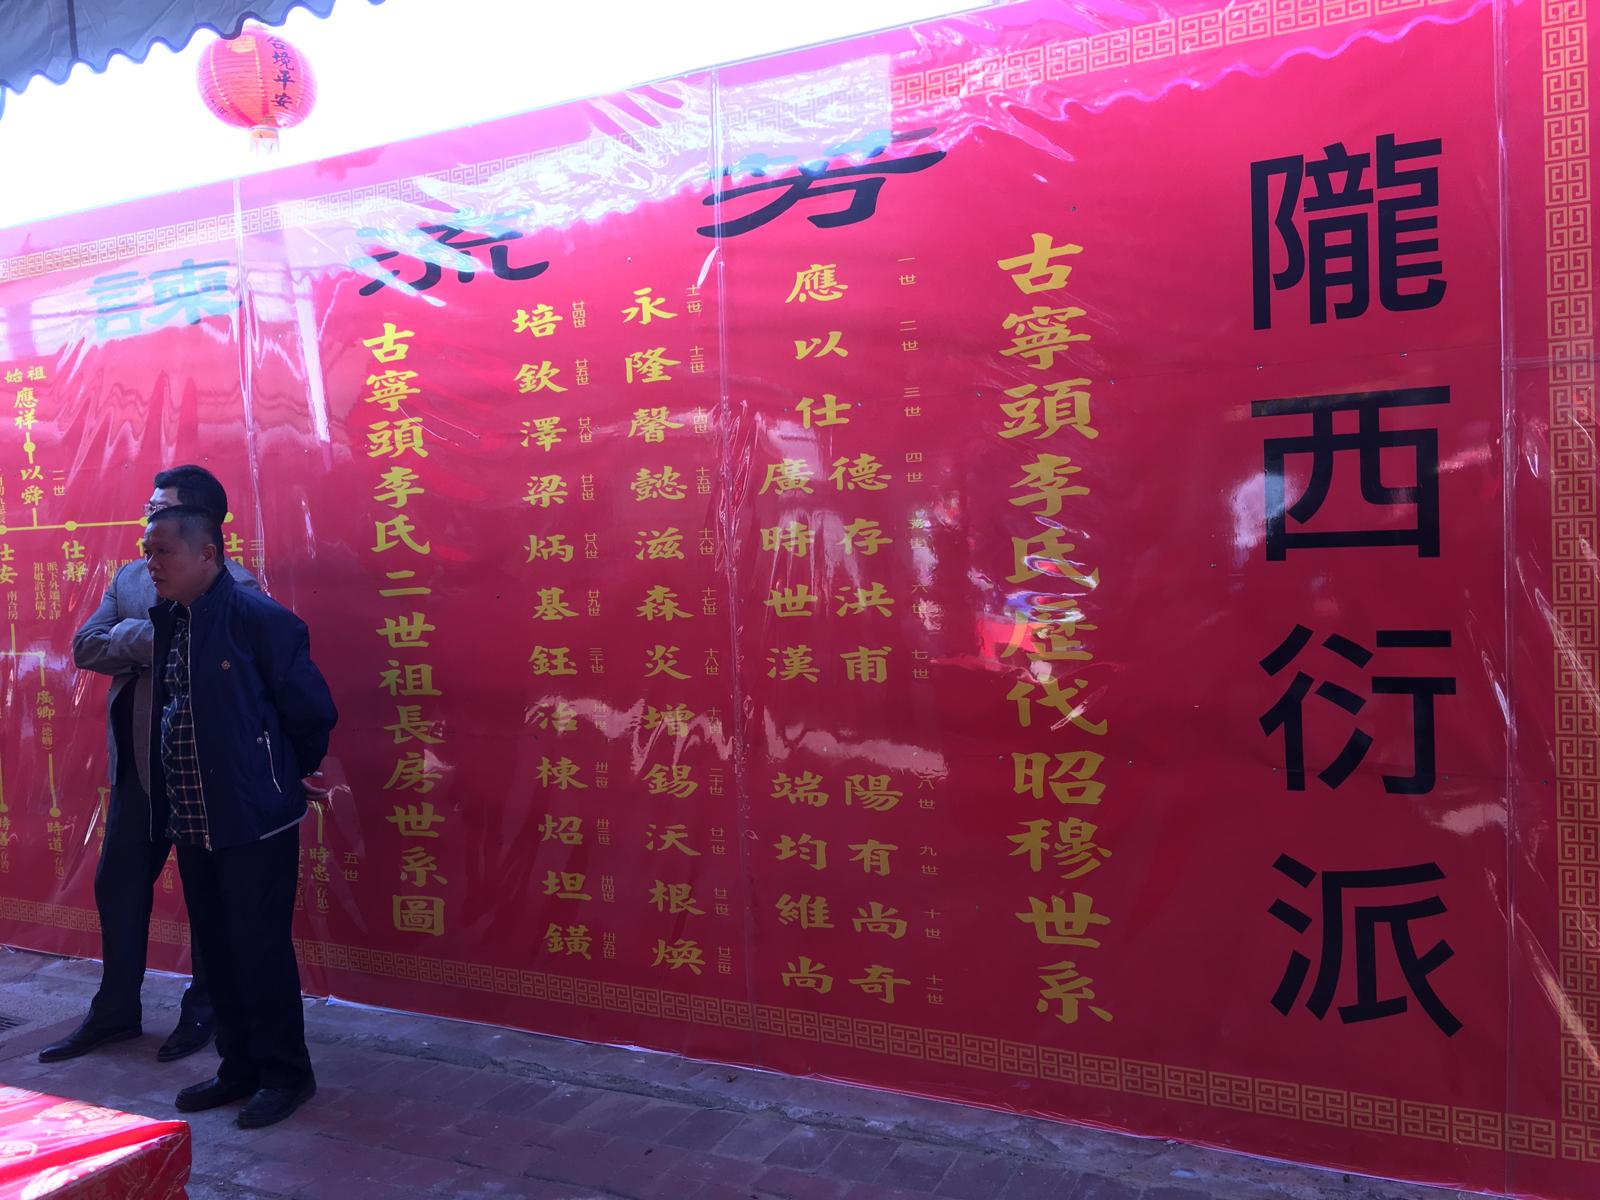 隴西衍派
古寧頭李氏歷代昭穆世系
一世 二世 三世 四世 六世 七世 八世 九世 十世 十一世
應以仕
德存洪甫陽有尚奇
廣時世漢端均維尚
十二世 十三世 十四世 十五世 十六世 十七世 十八世 二十世 廿一世 廿二世 廿三世
永隆馨懿滋森炎增錫沃根煥
廿四世 廿五世 廿六世 廿七世 廿八世 廿九世 三十世 卅一世 卅二世 卅三世 卅四世 卅五世
培欽澤梁炳基鈺治棟炤坦鐄
芳流
古寧頭李氏二世祖長房世系圖
合境平安
始祖
應祥
二世
以舜
三世
仕靜
派下外遷不詳
祖妣許氏儒人
仕安
南合房
廣卿
時道
五世
時忠